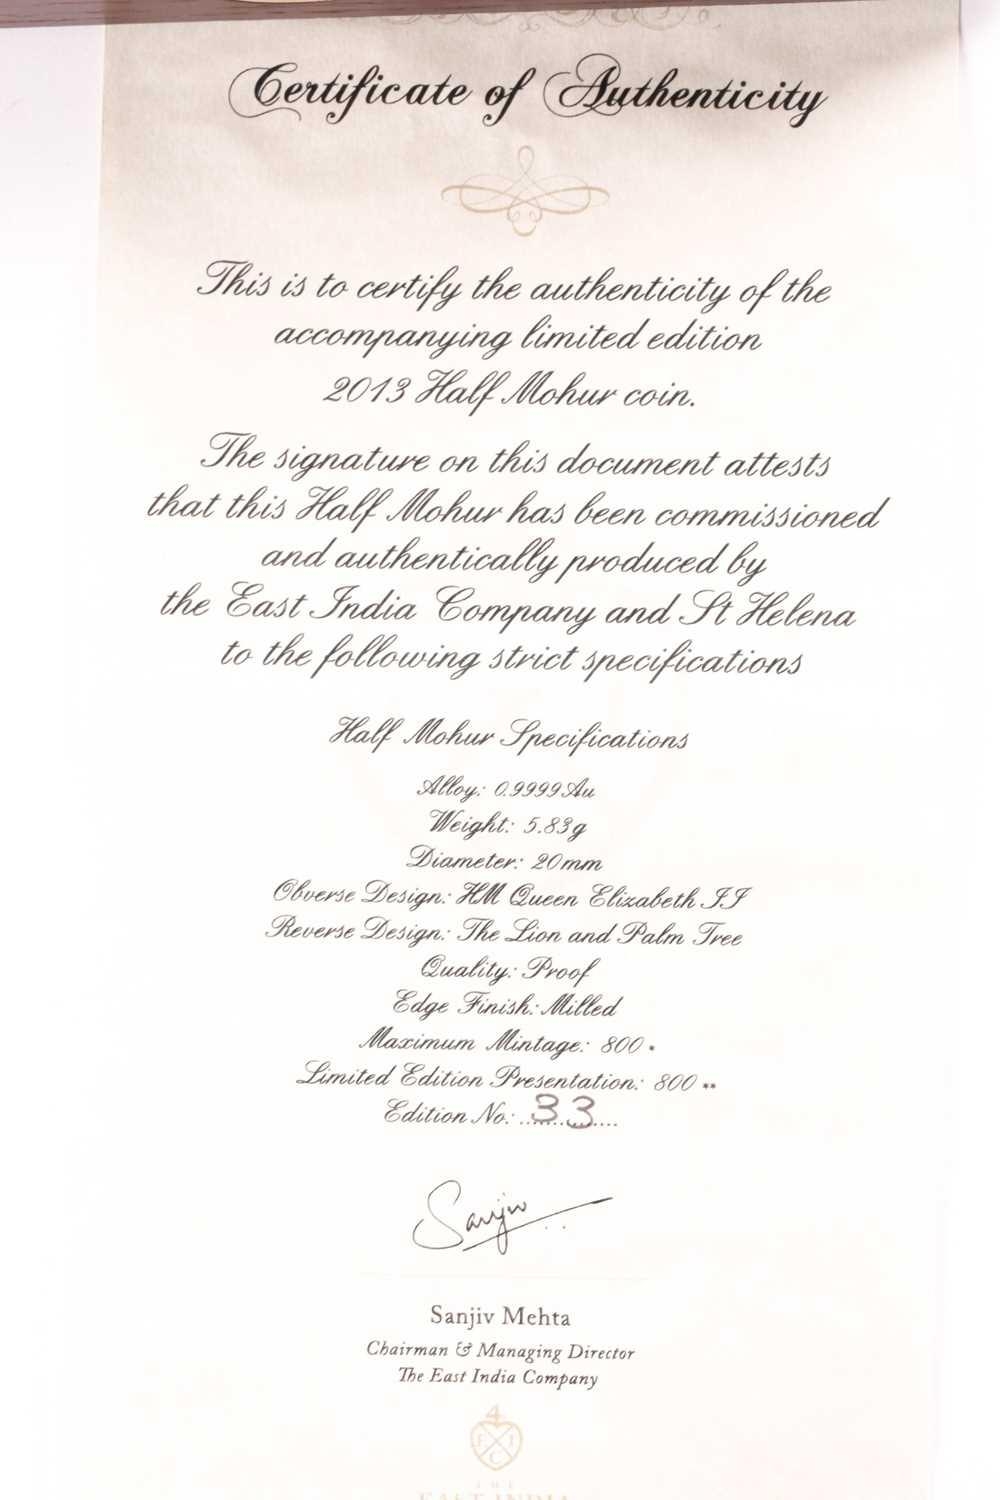 Certificate of Authenticity
This is to certify the authenticity of the
accompanying limited edition
2013 Half Mohur coin.
The signature on this document attests
that this Half Mohur has been commissioned
and authentically produced by
the East India Company and St Helena
to the following strict specifications
Half Mohur Specifications
Alloy: 0.9999 Au
Weight: 5.83g
Diameter: 20mm
Obverse Design: HM Queen Elizabeth II
Reverse Design: The Lion and Palm Tree
Quality: Proof
Edge Finish: Milled
Maximum Mintage: 800 *
Limited Edition Presentation: 800 **
Edition No: ....33....
Sanjiv
Sanjiv Mehta
Chairman & Managing Director
The East India Company
4
E I
C
THE
EAST INDIA